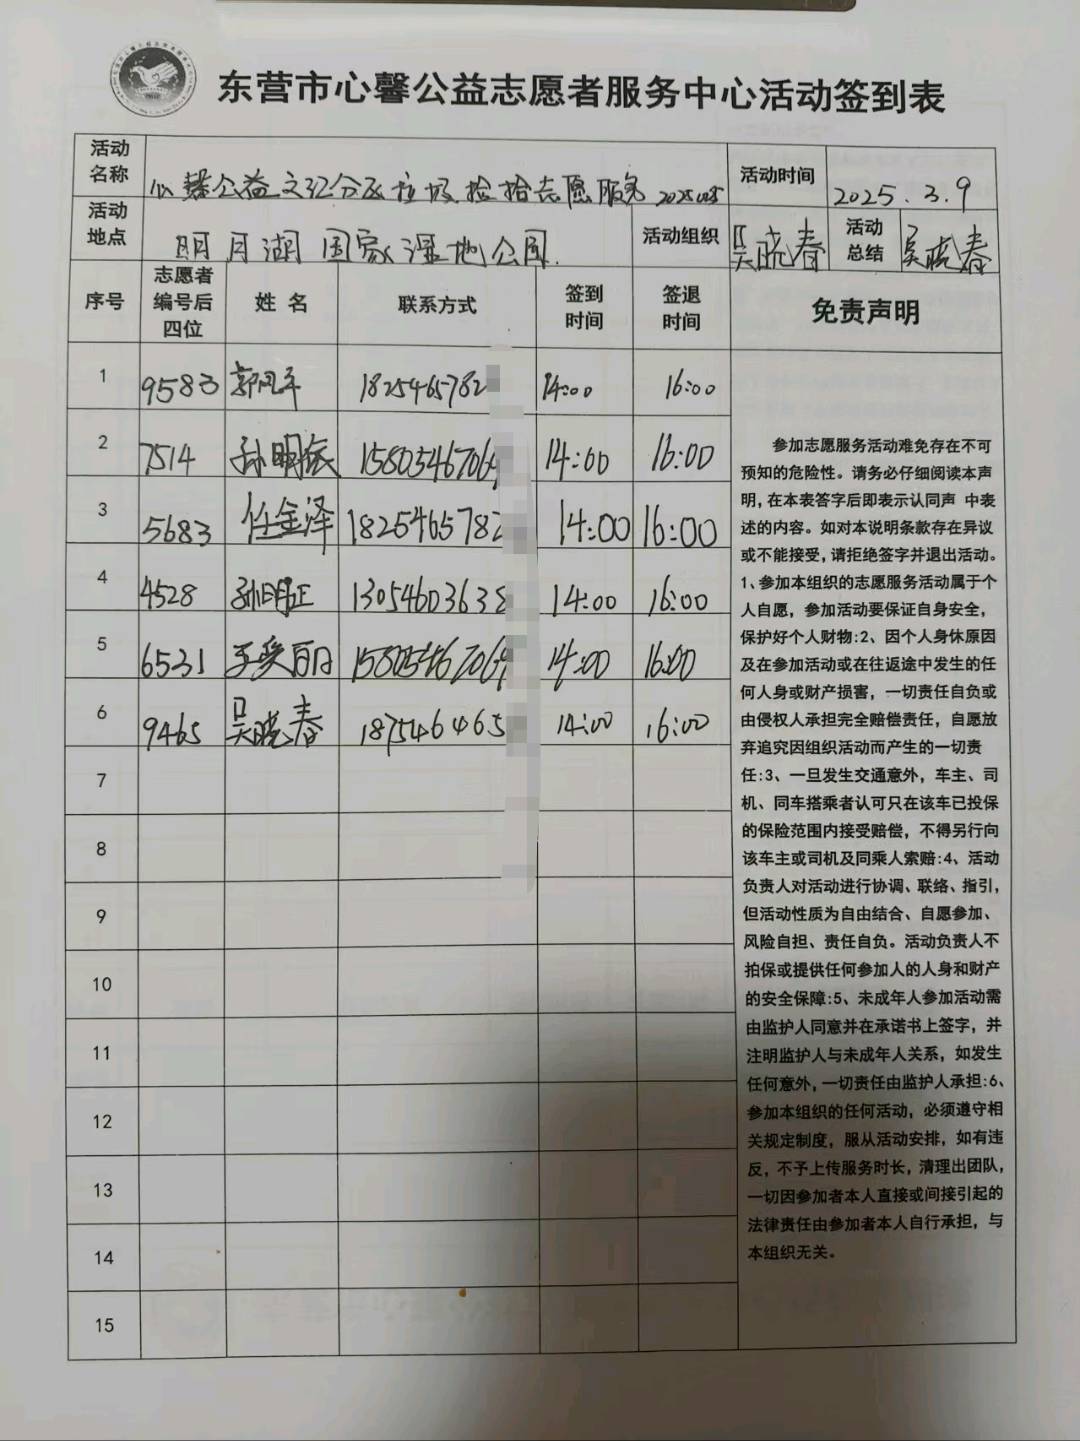 东营市心馨公益志愿者服务中心活动签到表
活动名称 心馨公益文汇分队垃圾捡拾志愿服务 活动时间 2025.3.9
活动地点 明月湖国家湿地公园. 活动组织 吴晓春 活动总结 吴晓春
序号 志愿者编号后四位 姓 名 联系方式 签到时间 签退时间 免责声明
1 9583 郭凤平 1825465782 14:00 16:00
2 7514 孙明振 1580546706 14:00 16:00
3 5683 任金泽 1825465782 14:00 16:00
4 4528 孙明正 1305460363 14:00 16:00
5 6531 1580546706 14:00 16:00
6 9465 吴晓春 187546465 14:00 16:00
7
8
9
10
11
12
13
14
15
参加志愿服务活动难免存在不可
预知的危险性。请务必仔细阅读本声
明，在本表答字后即表示认同声 中表
述的内容。如对本说明条款存在异议
或不能接受，请拒绝签字并退出活动。
1、参加本组织的志愿服务活动属于个
人自愿，参加活动要保证自身安全，
保护好个人财物:2、因个人身休原因
及在参加活动或在往返途中发生的任
何人身或财产损害，一切责任自负或
由侵权人承担完全赔偿责任，自愿放
弃追究因组织活动而产生的一切责
任:3、一旦发生交通意外，车主、司
机、同车搭乘者认可只在该车已投保
的保险范围内接受赔偿，不得另行向
该车主或司机及同乘人索赔:4、活动
负责人对活动进行协调、联络、指引，
但活动性质为自由结合、自愿参加、
风险自担、责任自负。活动负责人不
拍保或提供任何参加人的人身和财产
的安全保障:5、未成年人参加活动需
由监护人同意并在承诺书上签字，并
注明监护人与未成年人关系，如发生
任何意外，一切责任由监护人承担:6、
参加本组织的任何活动，必须遵守相
关规定制度，服从活动安排，如有违
反，不予上传服务时长，清理出团队，
一切因参加者本人直接或间接引起的
法律责任由参加者本人自行承担，与
本组织无关。